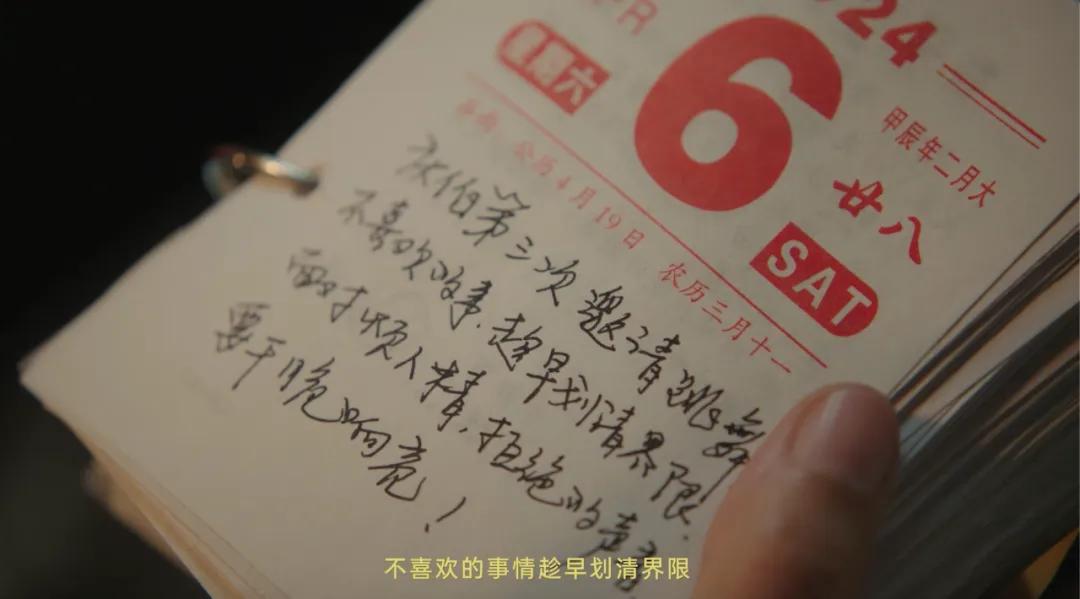 PR
24
星期六
6
甲辰年二月大
廿八
SAT
公历4月19日 农历三月十一
张伯第三次邀请跳舞
不喜欢的事,趁早划清界限.
面对烦人精,拒绝的声音
要干脆响亮!
不喜欢的事情趁早划清界限